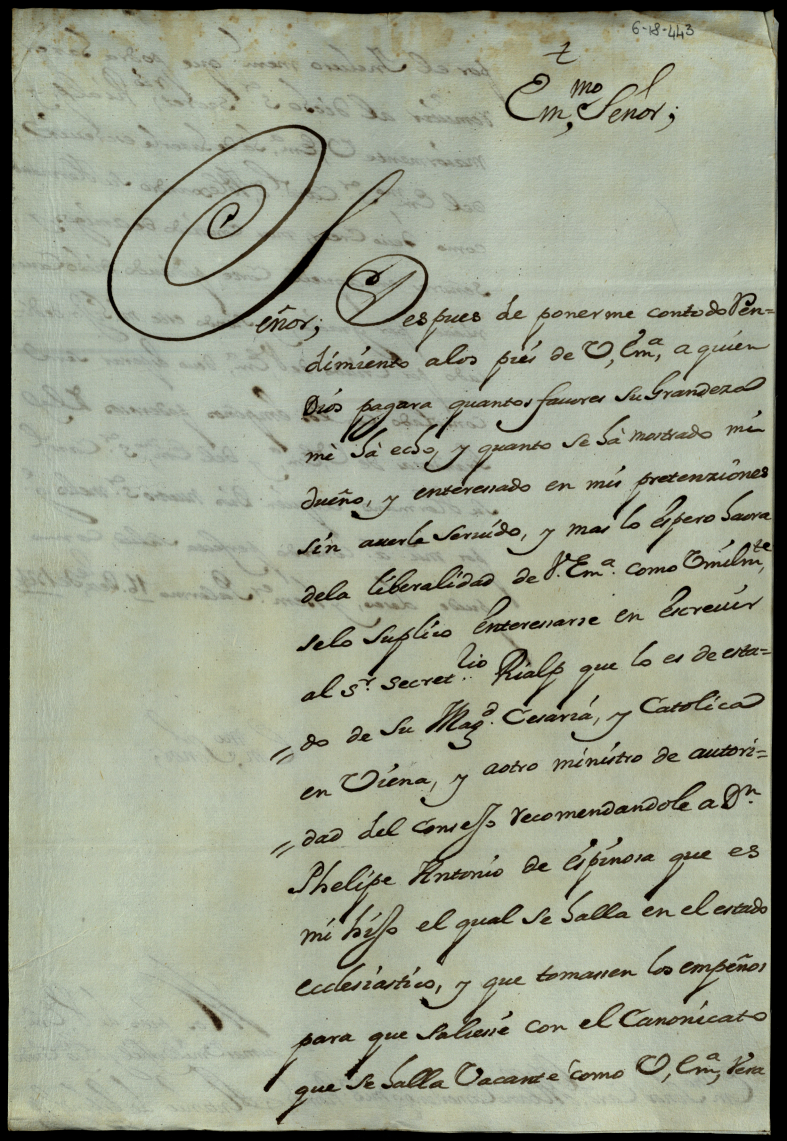 6-18-443
Em,mo Señor;
Señor; Despues de ponerme contodo Ren=
dimiento alos pies de V, Em,a, a quien
Dios pagara quantos favores su Grandeza
me hà echo, y quanto se hà mostrado mi
dueño, y enteressado en mis pretenziones
sin averle servido, y mas lo espero haora
dela liberalidad de V. Em.a como Vmilm,te
selo suplico Enteressarse en Escrevir
al sr. secret.rio Rialp que lo es de esta=
=do de su Mag.d Cesaria, y Catolica
en Viena, y aotro ministro de autori=
=dad del Consejo recomendandole a Dn.
Phelipe Antonio de Espinosa que es
mi hijo el qual se halla en el estado
ecclesiastico, y que tomassen los empeños
para que saliesse con el Canonicato
que se halla Vacante como V, Em,a, vera